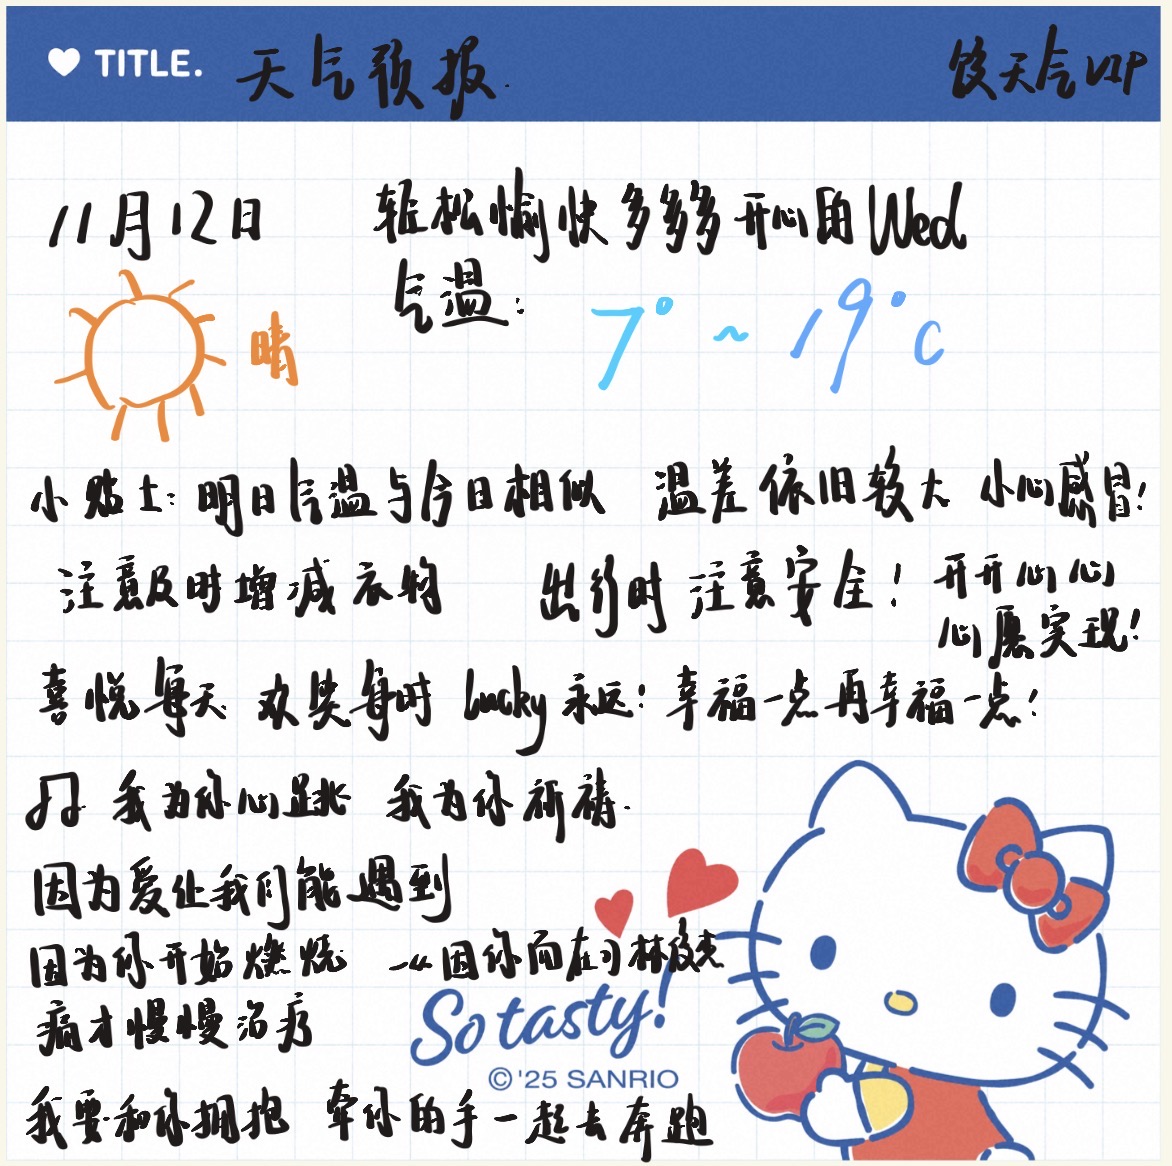 TITLE. 天气预报. 饺天气VIP
11月12日 轻松愉快多多多开心的Wed.
气温: 7°~19°C
晴
小贴士: 明日气温与今日相似 温差依旧较大 小心感冒!
注意及时增减衣物 出行时注意安全! 开开心心
心愿实现!
喜悦每天 欢笑每时 Lucky永远! 幸福一点再幸福一点!
♫ 我为你心跳 我为你祈祷.
因为爱让我们能遇到
因为你开始燃烧 —《因你而在》林俊杰
病才慢慢治疗
So tasty!
©'25 SANRIO
我要和你拥抱 牵你的手一起去奔跑